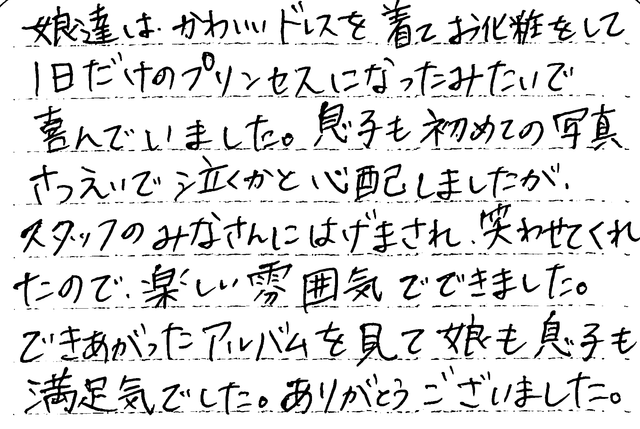 娘達は、かわいいドレスを着てお化粧をして
1日だけのプリンセスになったみたいで
喜んでいました。息子も初めての写真
さつえいで泣くかと心配しましたが、
スタッフのみなさんにはげまされ、笑わせてくれ
たので、楽しい雰囲気でできました。
できあがったアルバムを見て娘も息子も
満足気でした。ありがとうございました。